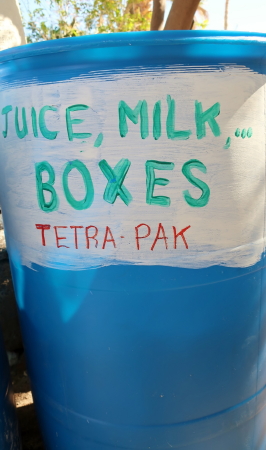 JUICE, MILK,...
BOXES
TETRA-PAK